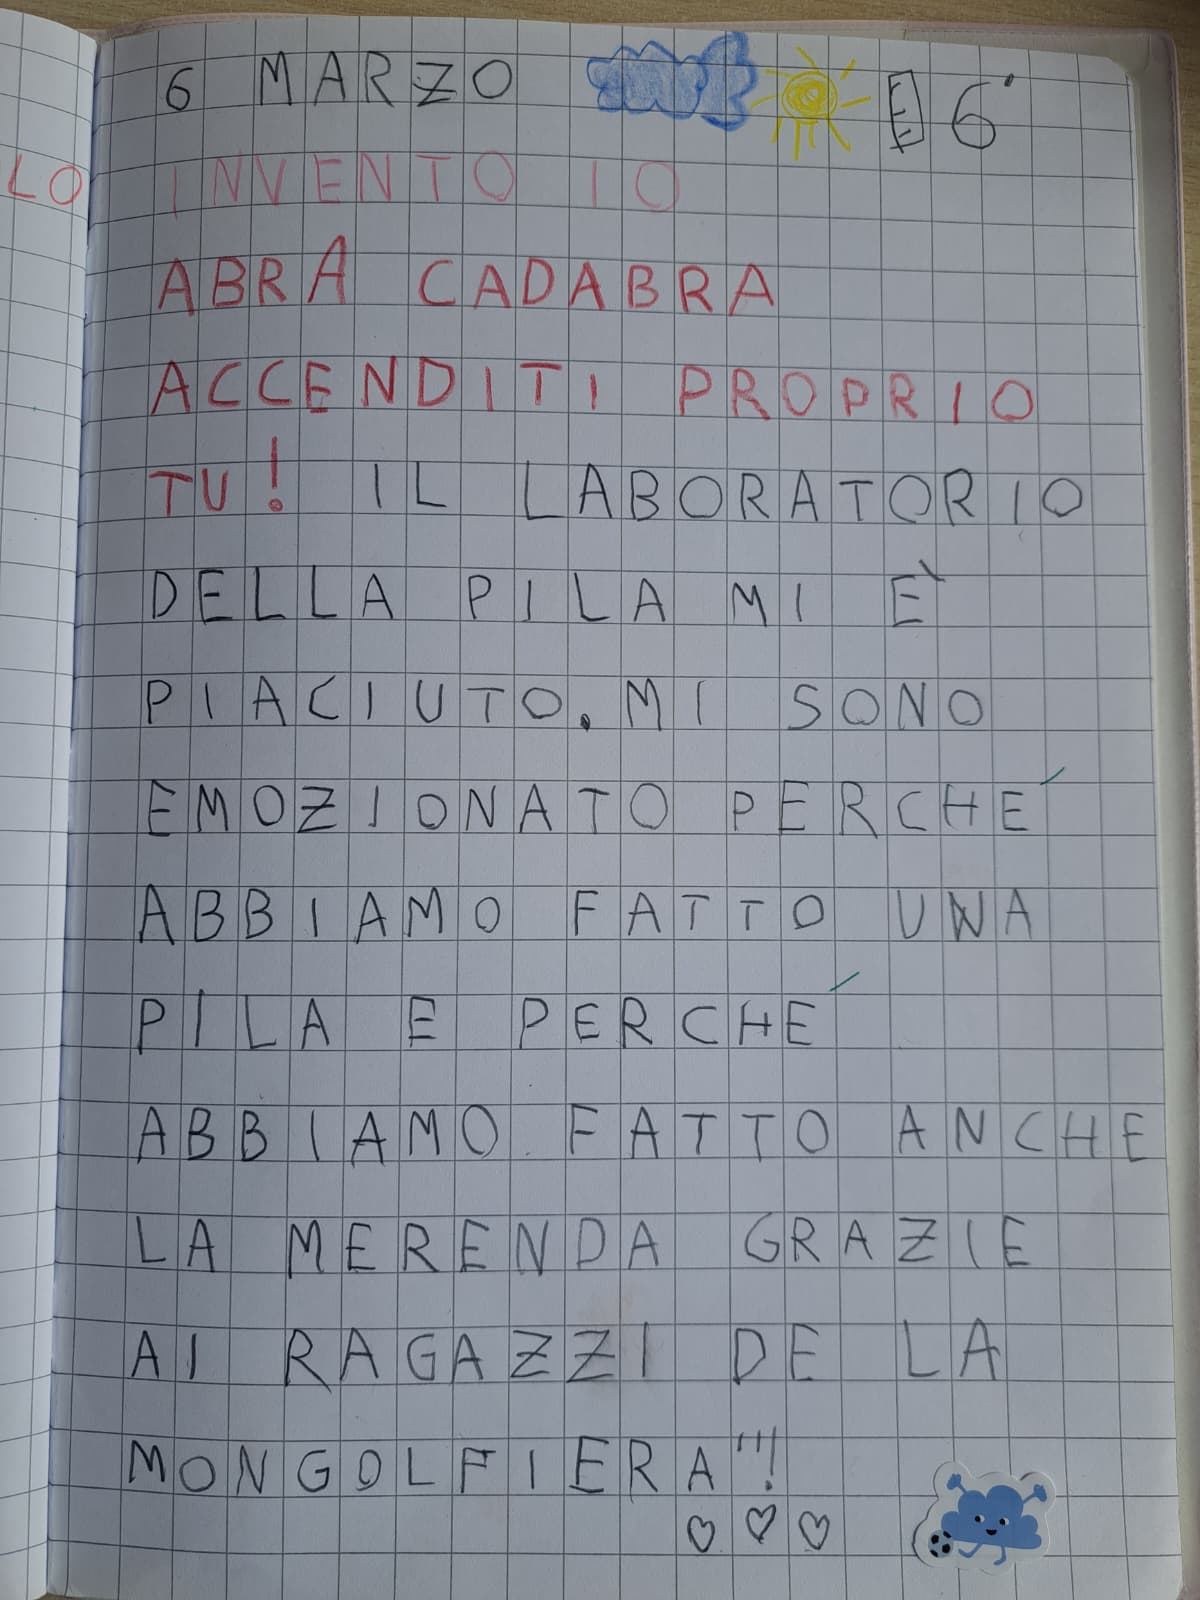 6 MARZO 6°
LO INVENTO IO
ABRA CADABRA
ACCENDITI PROPRIO
TU! IL LABORATORIO
DELLA PILA MI È
PIACIUTO. MI SONO
EMOZIONATO PERCHÉ
ABBIAMO FATTO UNA
PILA E PERCHÉ
ABBIAMO FATTO ANCHE
LA MERENDA GRAZIE
AI RAGAZZI DE LA
MONGOLFIERA"!